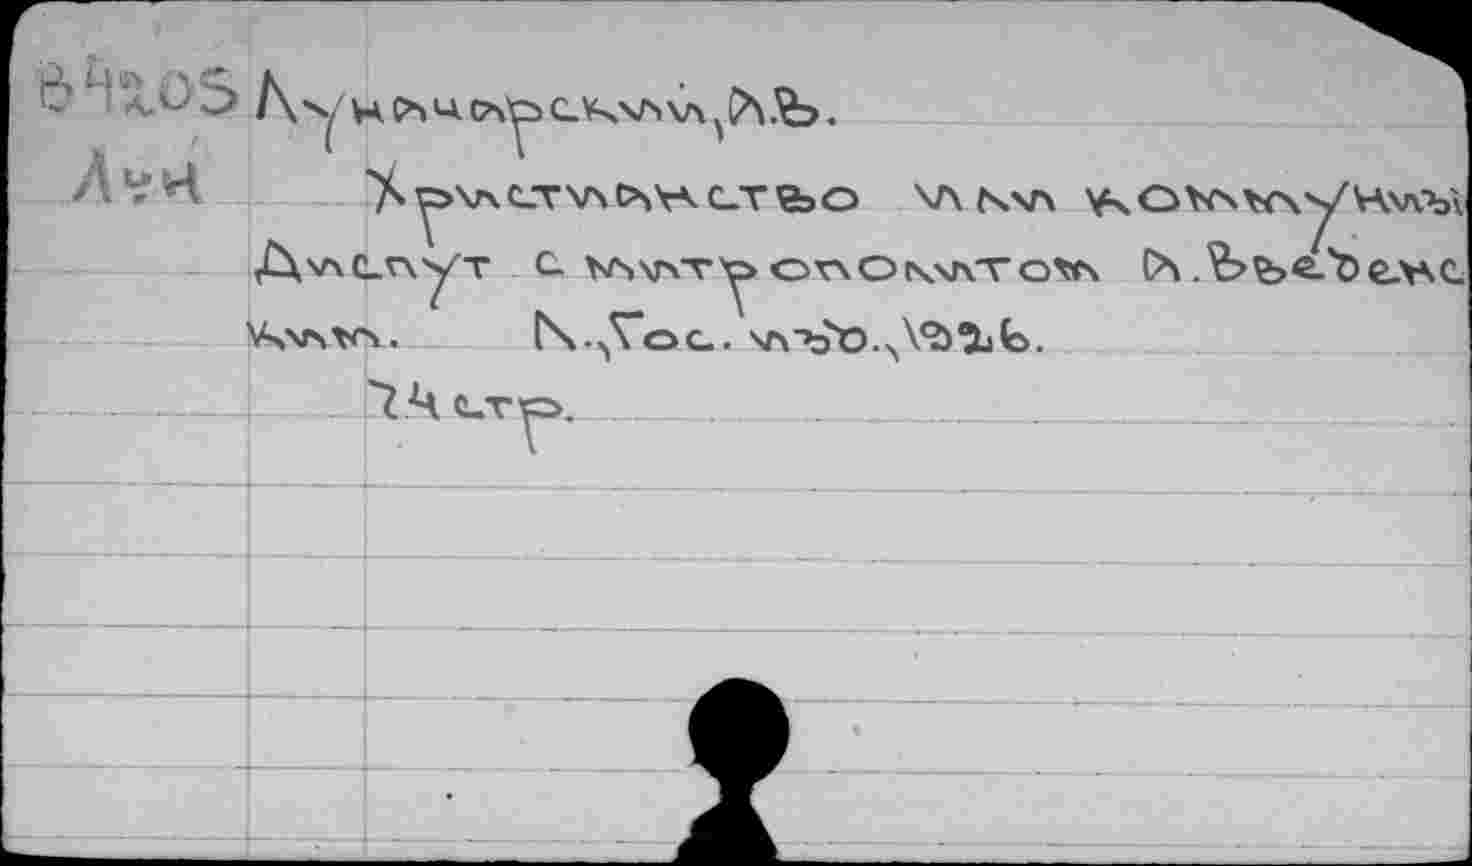 В4205 Луначарский, А.В.
Лун Христианство или коммунизм
Диспут с митрополитом А.Введенс
ким. Л., Гос. изд., 1926.
74 стр.